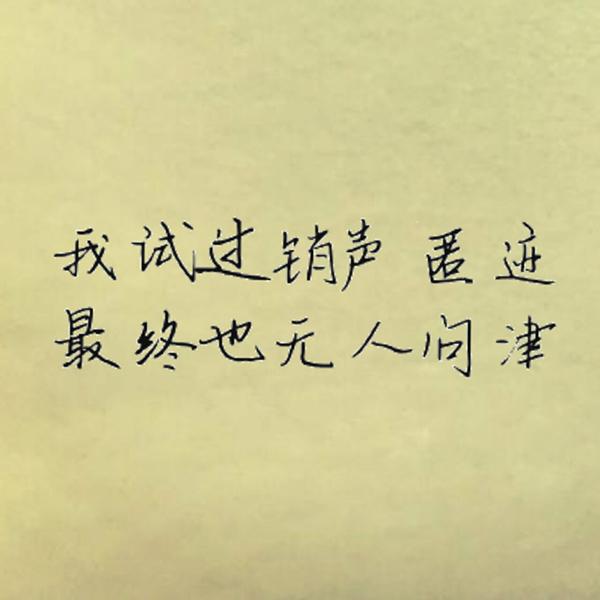 我试过销声匿迹
最终也无人问津